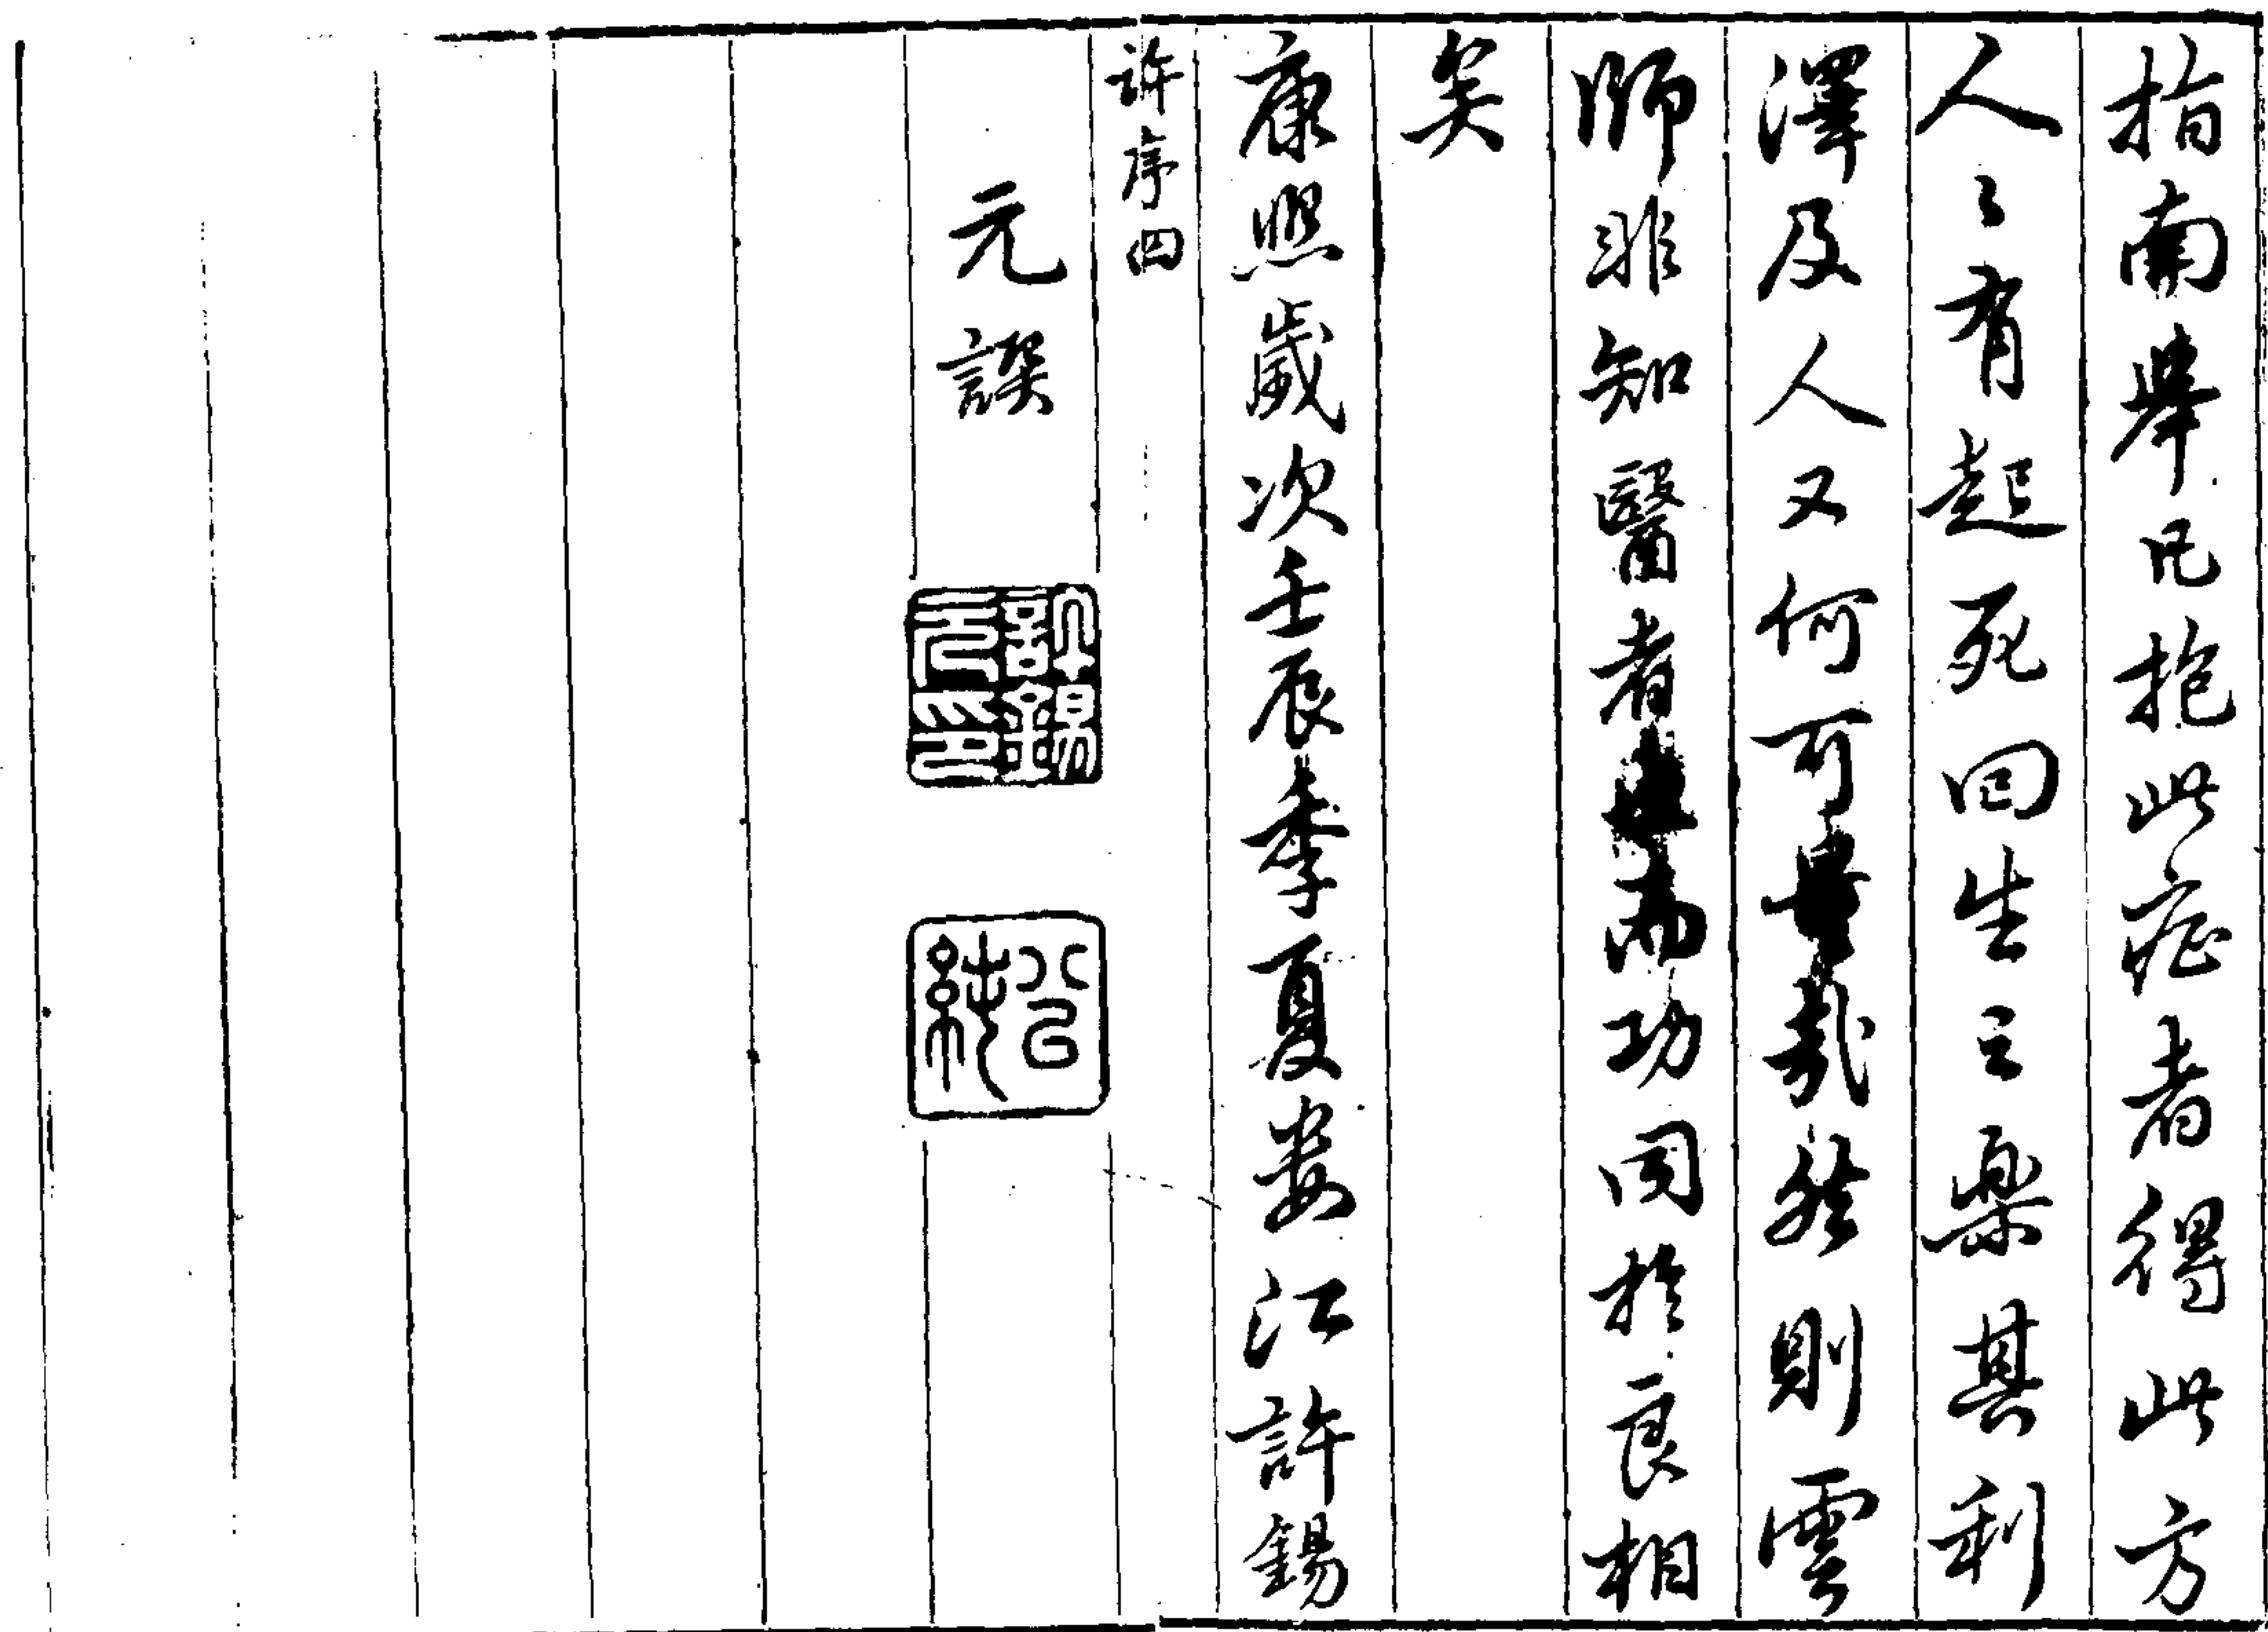 指南舉凡抱此症者得此方
人々有起死回生之樂其利
澤及人又何可量哉然則雲
師非知醫者也而功同於良相
矣
康熙歲次壬辰季夏婁江許錫
許序四
元譔
許錫元印
公純